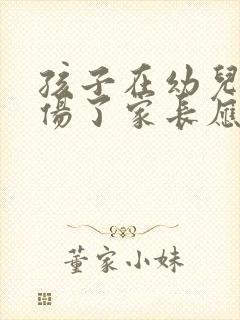 孩子在幼兒
傷了家長應
董家小妹